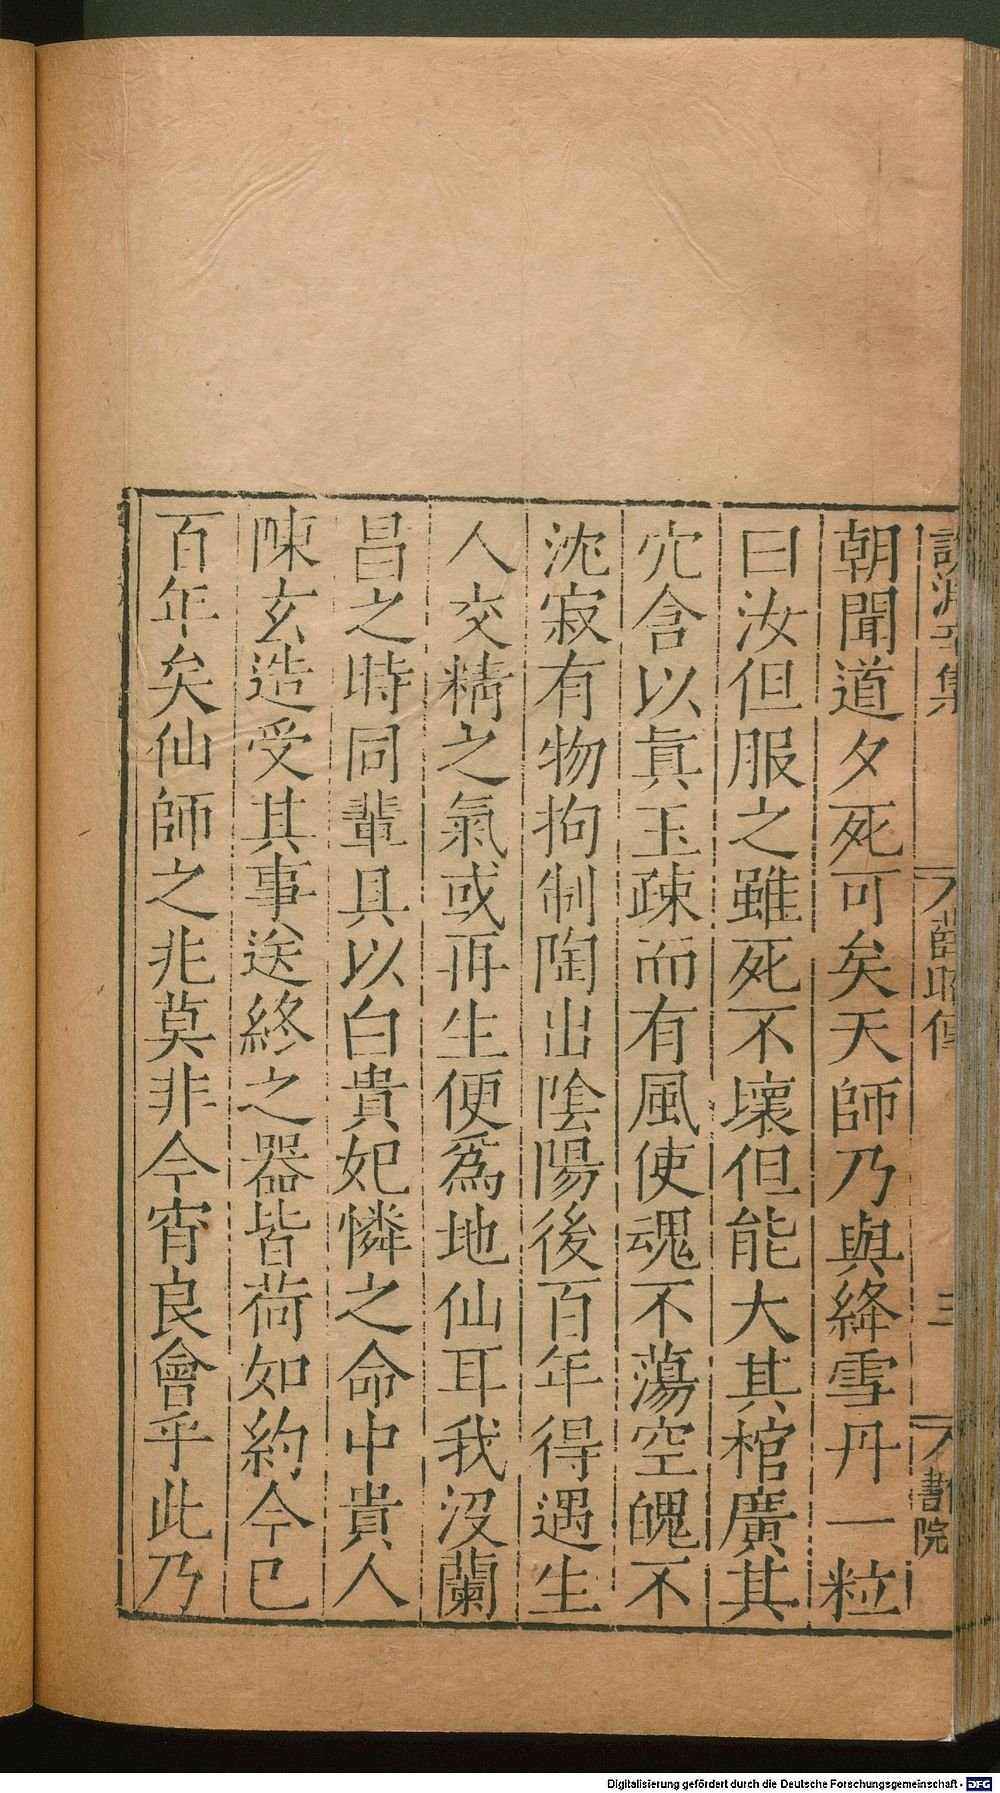 朝聞道夕死可矣天師乃與絳雪丹一粒
曰汝但服之雖死不壞但能大其棺廣其
穴含以眞玉疎而有風使魂不蕩空魄不
沈寂有物拘制陶出陰陽後百年得遇生
人交精之氣或再生便爲地仙耳我没蘭
昌之時同輩具以白貴妃憐之命中貴人
陳玄造受其事送終之器皆荷如約今已
百年矣仙師之兆莫非今宵良會乎此乃
薛昭傳
三
書院
Digitalisierung gefördert durch die Deutsche Forschungsgemeinschaft - DFG